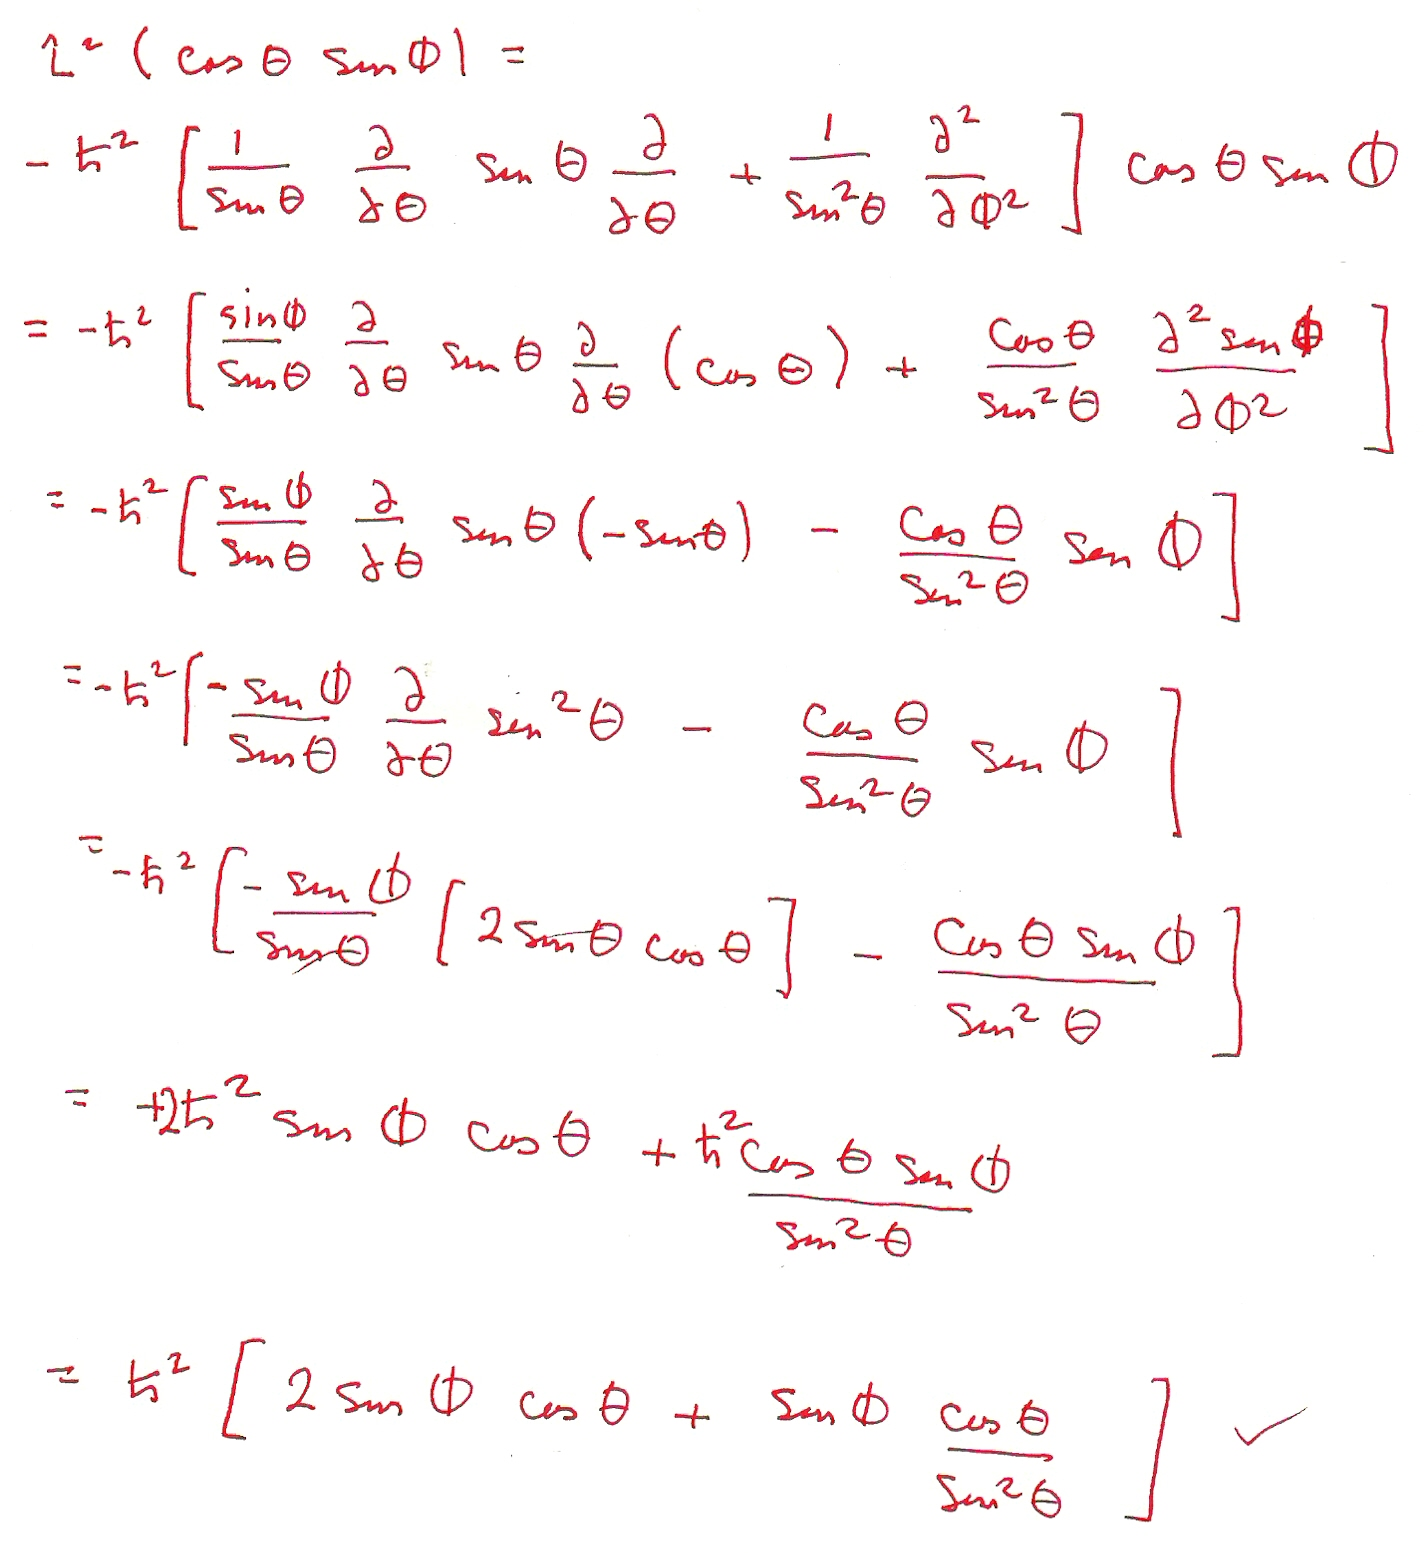 L² ( cos θ sin Φ) =
- ħ² [ 1/sin θ ∂/∂θ sin θ ∂/∂θ + 1/sin²θ ∂²/∂Φ² ] cos θ sin Φ
= -ħ² [ sinΦ/sinθ ∂/∂θ sin θ ∂/∂θ (cos θ) + cos θ/sin² θ ∂² sin Φ/∂Φ² ]
= -ħ² [ sin Φ/sin θ ∂/∂θ sin θ (-sinθ) - cos θ/sin² θ sin Φ ]
= -ħ² [ - sin Φ/sin θ ∂/∂θ sin² θ - cos θ/sin² θ sin Φ ]
= -ħ² [ - sin Φ/sin θ [ 2 sin θ cos θ ] - cos θ sin Φ/sin² θ ]
= +2ħ² sin Φ cos θ + ħ² cos θ sin Φ/sin² θ
= ħ² [ 2 sin Φ cos θ + sin Φ cos θ/sin² θ ] ✓